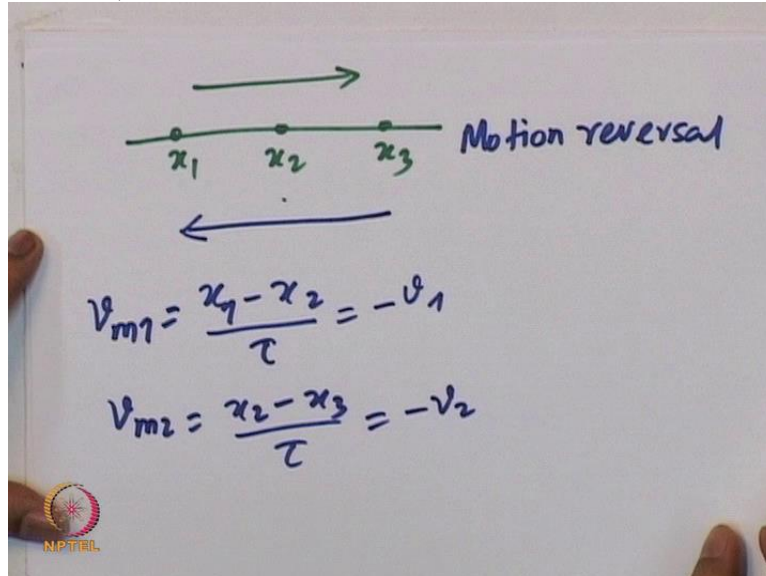 x₁ x₂ x₃ Motion reversal
𝒱m1 = (x₁ - x₂)/τ = -𝒱₁
𝒱m2 = (x₂ - x₃)/τ = -𝒱₂
NPTEL